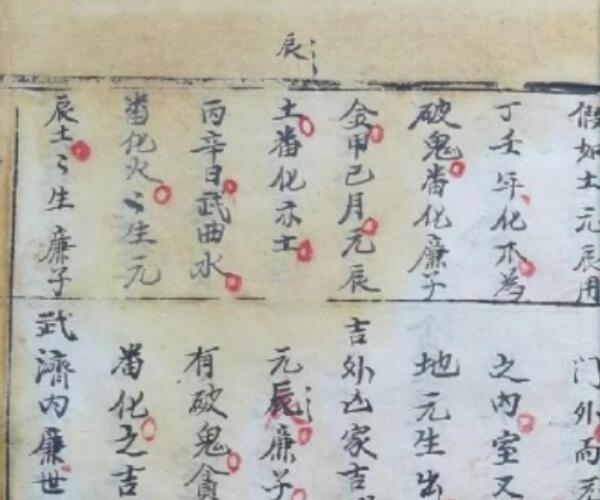 辰
假如土元辰用
丁壬年化木為
破鬼畨化廉子
金甲己月元辰
土畨化亦土
丙辛日武曲水
畨化火〻生元
辰土〻生廉子
门外而
之内室又
地元生出
吉外凶家吉
元辰廉子
有破鬼貪
畨化之吉
武濟内廉世